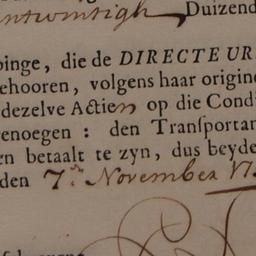 Duizend
binge, die de DIRECTEUR
ehooren, volgens haar origine
dezelve Actien op die Cond
enoegen : den Tranſportan
en betaalt te zyn, dus beyde
den 7.en November 17